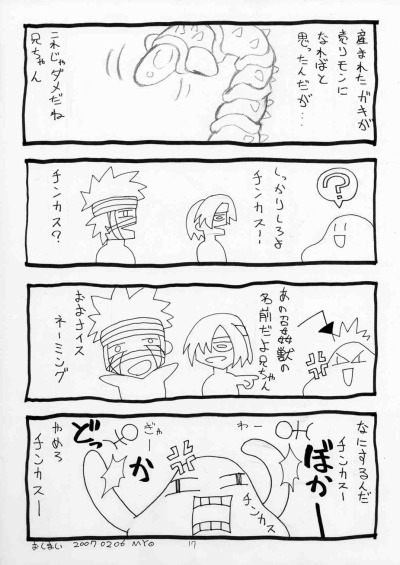 産まれたガキが
売りモンに
なればと
思ったんだが…
これじゃダメだね
兄ちゃん
?
しっかりしろよ
チンカスー
チンカス?
あの召姦獣の
名前だよ兄ちゃん
おおナイス
ネーミング
なにするんだ
チンカスー
ぼかー
わー
チンカス
ぎゃー
どっか
やめろ
チンカスー
おしまい 20070206 MYO
17